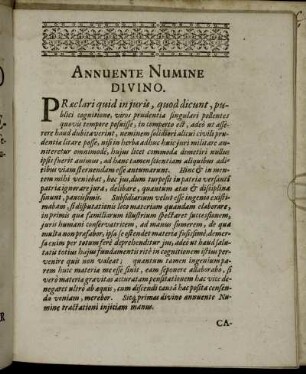 ANNUENTE NUMINE
DIVINO.
PRæclari quid in juris, quod dicunt, pu-
blici cognitione, viros prudentia singulari pollentes
quovis tempore posuisse, in comperto est, adeò ut asse-
rere haud dubitaverint, neminem solidiori alicui civili pru-
dentiæ litare posse, nisi in herba adhuc
niteretur omnimodè, hujus licet commoda demetiri nullus
ipsi fuerit animus, ad hanc tamen scientiam aliquibus adi-
tibus viam sternendam esse autumarunt. Hinc & in men-
tem mihi veniebat, hoc jus, dum turpe sit in patria versanti
patria ignorare jura, delibare, quantum ætas & disciplina
sinunt, pauculis. Subsidiarium velut esse ingenio existi-
mabam, si disputationis loco materiam quandam elaborare,
in primis quæ familiarum illustrium spectaret successionem,
juri humani conservatricem, ad manus sumerem, de qua
multa non præfabor, ipsa se ostendet materia fusissimo dimer-
sa cuim per totum ferè deprehenditur jus, adeò ut haud sa-
lutatis totius hujus fundamentis rite in cognitionem istius per-
venire quis non valeat; quantum tamen ingenium pa-
rem huic materiæ me esse sinit, eam seponere allaborabo, si
verò materia gravitas accuratam pensitationem hac vice de-
negaret ultrò ab æquis, cum discendi causâ hæc posita censen-
da veniam, mereber. Sicq; primas divino annuente Nu-
mine tractationi injiciam manus.
CA-